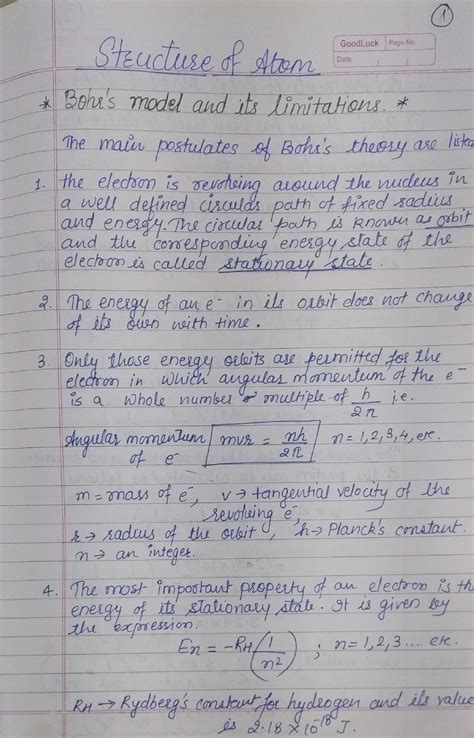 1
GoodLuck Page No.
Date
Structure of Atom
* Bohr's model and its limitations. *
The main postulates of Bohr's theory are listed
1. the electron is revolving around the nucleus in
a well defined circular path of fixed radius
and energy. The circular path is known as orbit
and the corresponding energy state of the
electron is called stationary state.
2. The energy of an e⁻ in its orbit does not change
of its own with time.
3. Only those energy orbits are permitted for the
electron in which angular momentum of the e⁻
is a whole number multiple of h/2π i.e.
Angular momentum of e⁻ mvr = nh/2π n = 1,2,3,4, etc.
m = mass of e⁻, v → tangential velocity of the
revolving e⁻,
r → radius of the orbit, h → Planck's constant.
n → an integer.
4. The most important property of an electron is the
energy of its stationary state. It is given by
the expression.
En = -RH (1/n²) ; n = 1,2,3.... etc.
RH → Rydberg's constant for hydrogen and its value
is 2.18 × 10⁻¹⁸ J.